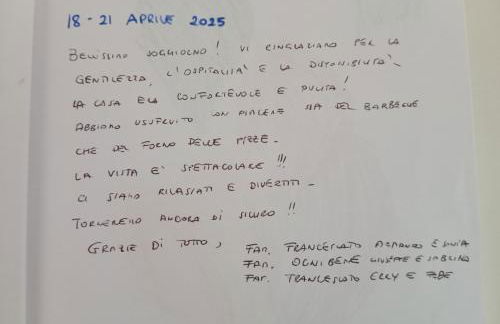 18 - 21 APRILE 2025
BELLISSIMO SOGGIORNO! VI RINGRAZIAMO PER LA
GENTILEZZA, L'OSPITALITÀ E LA DISPONIBILITÀ.
LA CASA ERA CONFORTEVOLE E PULITA!
ABBIAMO USUFRUITO CON PIACERE SIA DEL BARBECUE
CHE DEL FORNO DELLE PIZZE.
LA VISTA E' SPETTACOLARE!!!
CI SIAMO RILASSATI E DIVERTITI.
TORNEREMO ANCORA DI SICURO!!
GRAZIE DI TUTTO,
FAM. FRANCESCATO E
FAM. OGNIBENE GIUSEPPE E SABRINA
FAM. FRANCESCATO E